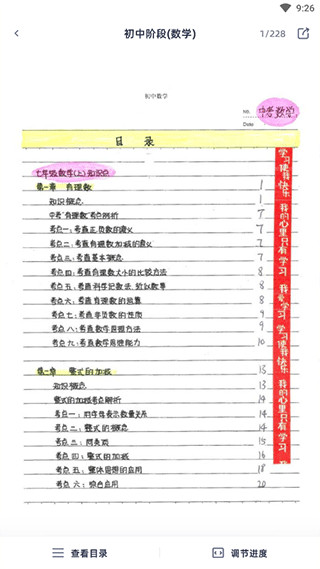 9:26
初中阶段(数学)
1/228
初中数学
No.
中考数学
Date
目 录
七年级数学(上)知识点
第一章 有理数 1
知识概念 1
中考"有理数"考点解析 7
考点一:考查正负数的意义 7
考点二:考查有理数加减的意义 7
考点三:考查基本概念 7
考点四:考查有理数大小的比较方法 8
考点五:考查科学记数法,验以数等 8
考点六:考查有理数的运算 8
考点七:考查非负数的性质 9
考点八:考查数学思想方法 9
考点九:考查数学思维能力 10
第二章 整式的加减 13
知识概念 13
整式的加减考点解析 14
考点一:用字母表示数量关系 14
考点二:整式的概念 14
考点三:同类项 15
考点四:整式的加减 16
考点五:整体思想的应用 18
考点六:综合应用 20
学习使我快乐 我的心里只有学习 我爱学习 学习使我快乐 我的心里只有学习
查看目录
调节进度